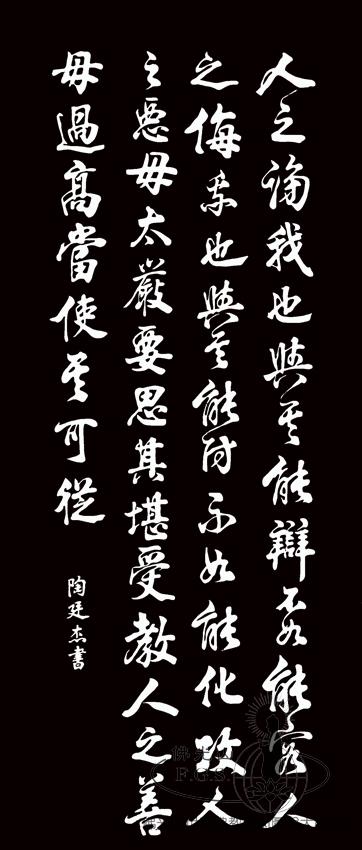 人之謗我也與其能辯不如能容人
之侮我也與其能防不如能化攻人
之惡毋太嚴要思其堪受教人之善
毋過高當使其可從
陶廷杰書
F.G.S.